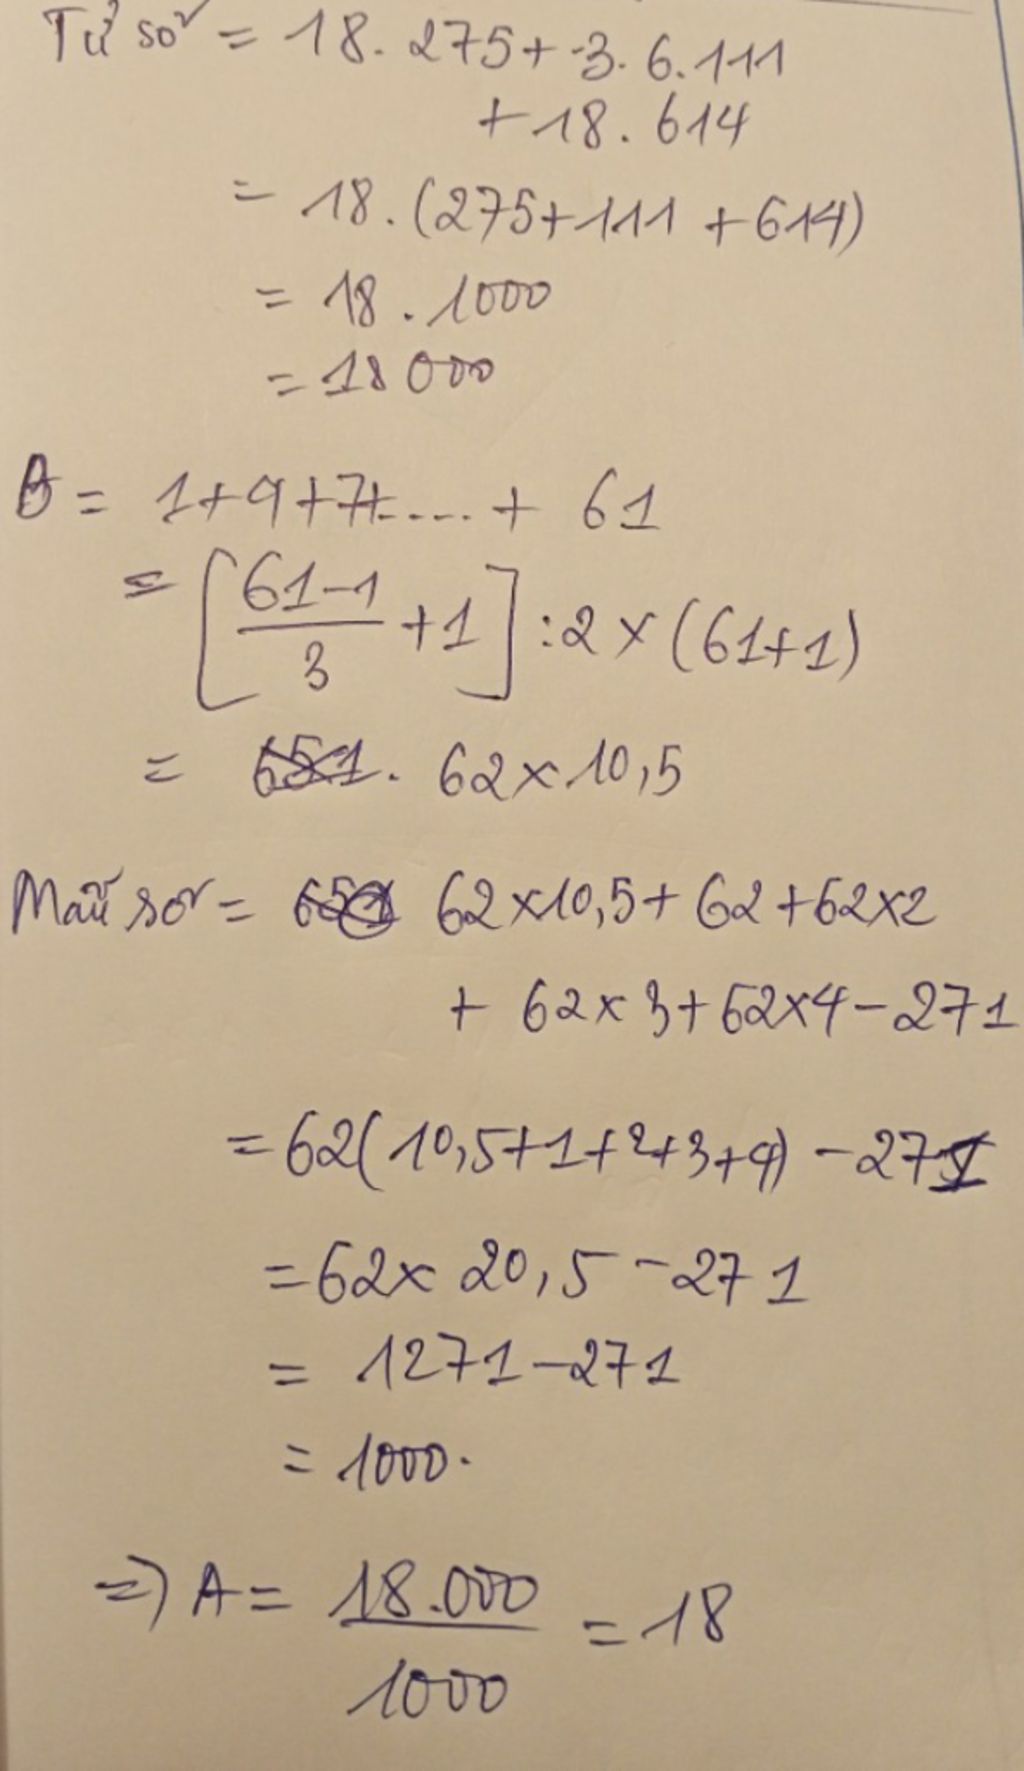 Tử số = 18. 275 + 3. 6. 111
+ 18. 614
= 18. (275 + 111 + 614)
= 18 . 1000
= 18 000
B = 1 + 4 + 7 + .... + 61
= [ (61 - 1)/3 + 1 ] : 2 x (61 + 1)
= 62 x 10,5
Mẫu số = 62 x 10,5 + 62 + 62 x 2
+ 62 x 3 + 62 x 4 - 271
= 62( 10,5 + 1 + 2 + 3 + 4) - 271
= 62 x 20,5 - 271
= 1271 - 271
= 1000.
=> A = 18.000/1000 = 18